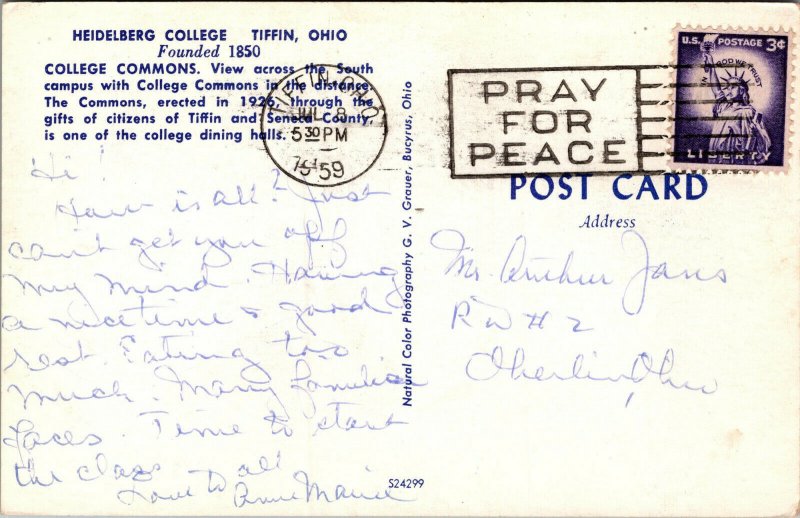 HEIDELBERG COLLEGE TIFFIN, OHIO
Founded 1850
COLLEGE COMMONS. View across the South
campus with College Commons in the distance.
The Commons, erected in 1926, through the
gifts of citizens of Tiffin and Seneca County,
is one of the college dining halls.
TIFFIN, OHIO
JUL 8
5 30 PM
1959
PRAY
FOR
PEACE
U.S. POSTAGE 3¢
IN GOD WE TRUST
LIBERTY
Hi!
How is all? Just
can't get you off
my mind. Having
a nice time & good
rest. Eating too
much. Many familiar
faces. Time to start
the class
Love to all
Anne Marie
Natural Color Photography G. V. Grauer, Bucyrus, Ohio
S24299
POST CARD
Address
Mr. Arthur
# 2
Oberlin, Ohio